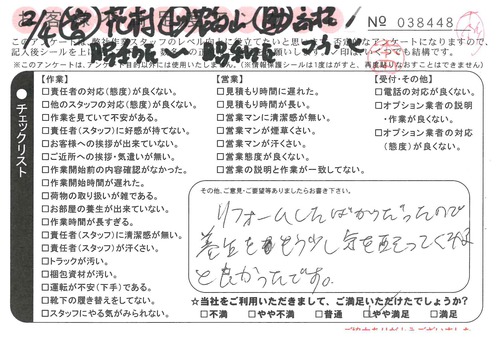 No 038448
このアンケートは、弊社作業スタッフのレベル向上に役立てたいと思います。否定的なアンケートになりますので、
記入後シールを上に
※このアンケートは、アンケート目的以外には使用いたしません。(※情報保護シールは1度はがすと、再度貼りなおすことはできません)
●チェックリスト
【作業】
□責任者の対応(態度)が良くない。
□他のスタッフの対応(態度)が良くない。
□作業を見ていて不安がある。
□責任者(スタッフ)に好感が持てない。
□お客様への挨拶が出来ていない。
□ご近所への挨拶・気遣いが無い。
□作業開始前の内容確認がなかった。
□作業開始時間が遅れた。
□荷物の取り扱いが雑である。
□お部屋の養生が出来ていない。
□作業時間が長すぎる。
□責任者(スタッフ)に清潔感が無い。
□責任者(スタッフ)が汗くさい。
□トラックが汚い。
□梱包資材が汚い。
□運転が不安(下手)である。
□靴下の履き替えをしてない。
□スタッフにやる気がみられない。
【営業】
□見積もり時間に遅れた。
□見積もり時間が長い。
□営業マンに清潔感が無い。
□営業マンが煙草くさい。
□営業マンが汗くさい。
□営業態度が良くない。
□営業の説明と作業が一致してない。
【受付・その他】
□電話の対応が良くない。
□オプション業者の説明
・作業が良くない。
□オプション業者の対応
(態度)が良くない。
その他、ご意見・ご要望等ありましたらお書き下さい。
リフォームしたばかりだったので
養生をもう少し気を配ってくれると
と良かったです。
☆当社をご利用いただきまして、ご満足いただけたでしょうか?
□不満 □やや不満 □普通 □やや満足 □満足